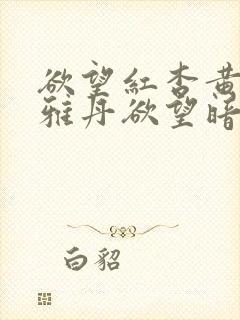 欲望紅杏黃
雅丹欲望暗
白貂